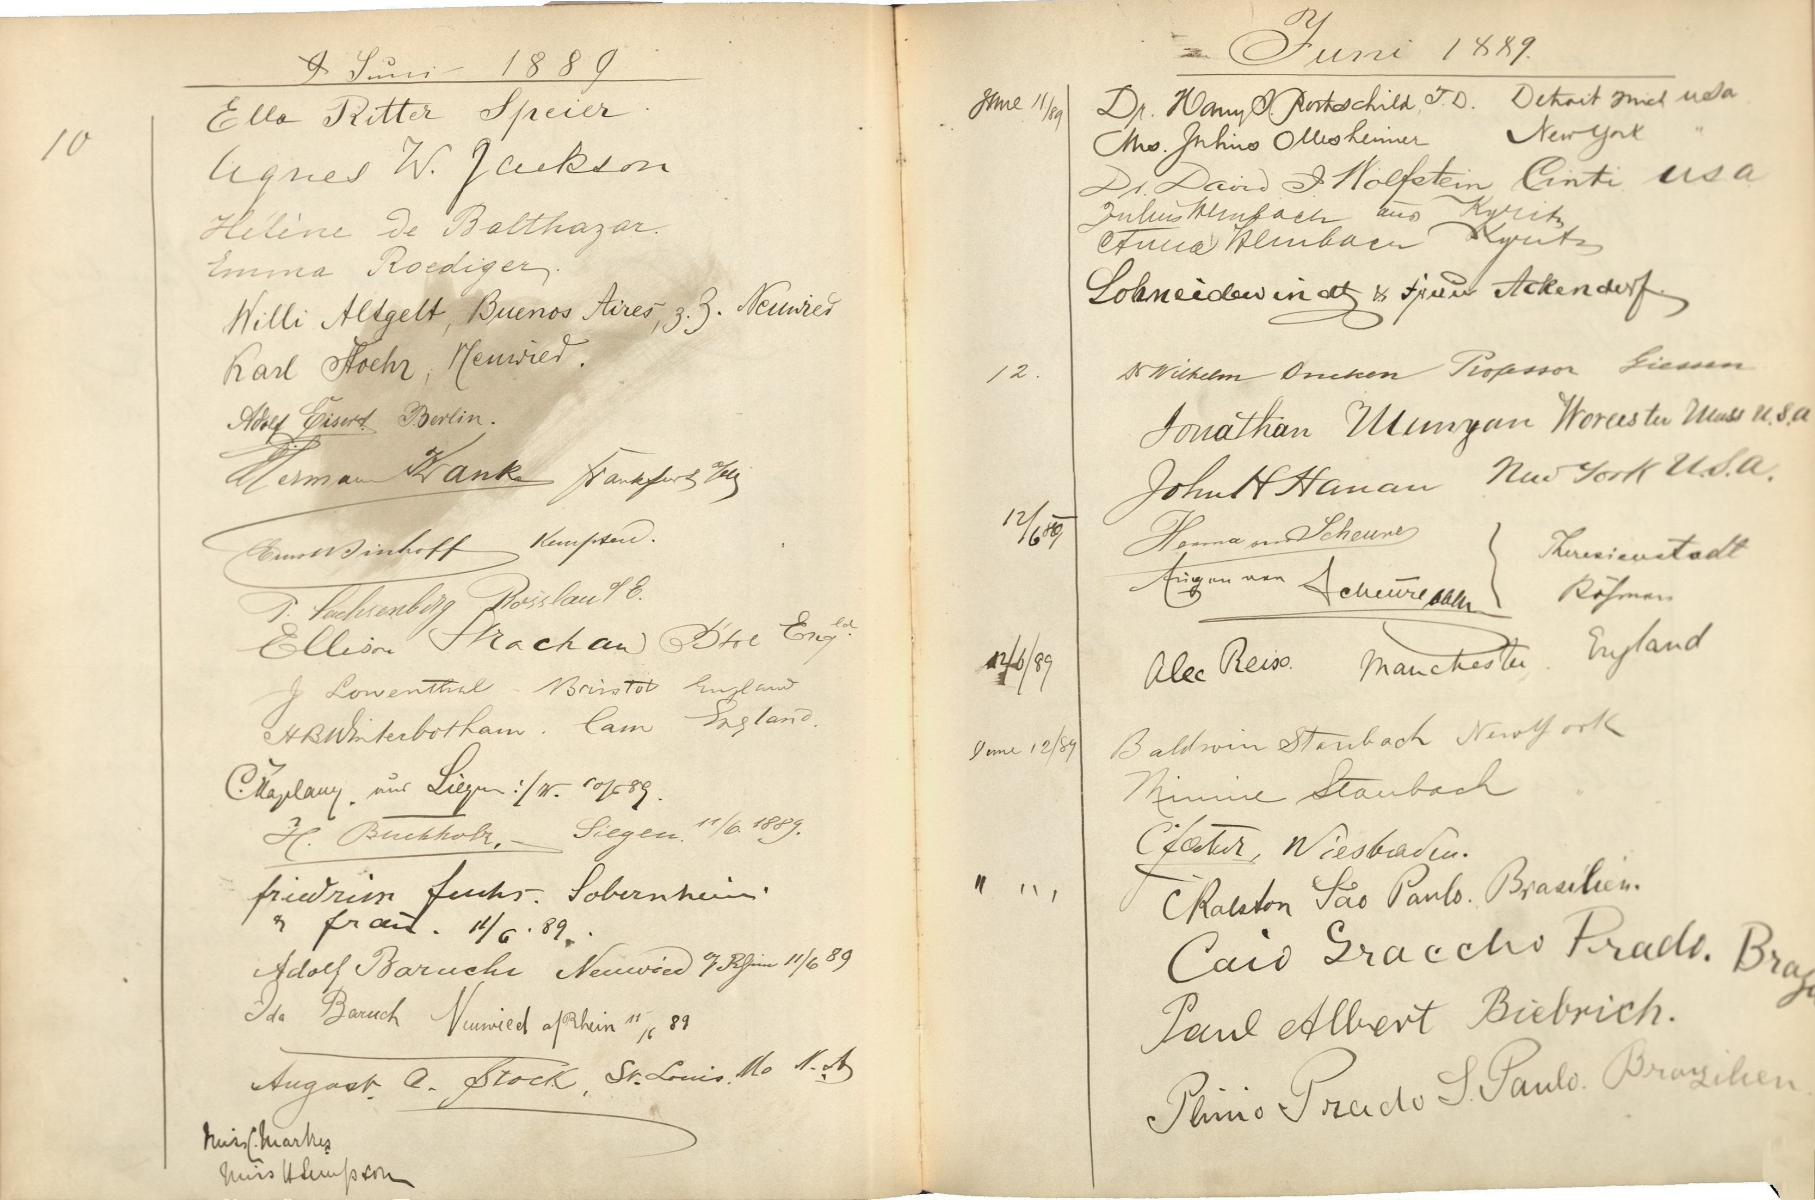 9 Juni 1889
10
Ella Ritter Speier
Agnes W. Jackson
Hélène de Balthazar.
Emma Roediger.
Willi Altgelt, Buenos Aires, z. Z. Neuwied
Karl Stoehr, Neuwied.
Adolf Eisert Berlin.
Herman Wanke Frankfurt
Kempten.
P. Sachsenberg Rosslau a/E.
Ellison Strachan Engld.
J Lowenthal Bristol England
H B Winterbotham. Cam England.
aus Siegen 10/6 89.
H. Buchholz, Siegen 11/6. 1889.
Friedrich Fuchs. Sobernheim
u frau. 11/6. 89.
Adolf Baruch Neuwied a/Rhein 11/6 89
Ida Baruch Neuwied a/Rhein 11/6 89
August A. Stock, St. Louis. Mo N. A
Miss C. Markes
Miss H Simpson
Juni 1889.
June 11/89
Dr. Rothschild, Detroit Mich USA
Mrs. Julius Ollesheimer New York "
Dr. David I Wolfstein Cinti USA
Julius aus Kyritz
Anna Kyritz
Schneidewindt & Frau Ackendorf
12.
Dr Wilhelm Oncken Professor Giessen
Jonathan Worcester Mass U.S.A
John H Hanan New York U.S.A.
12/6 89
Theresienstadt
von Scheure
Böhmen
12/6/89
Alec Reiss. Manchester England
June 12/89
Baldwin Staubach New York
Minnie Staubach
Wiesbaden.
" " "
C Ralston São Paulo. Brasilien.
Caio Graccho Prado.
Paul Albert Biebrich.
Plinio Prado S. Paulo. Brazilien